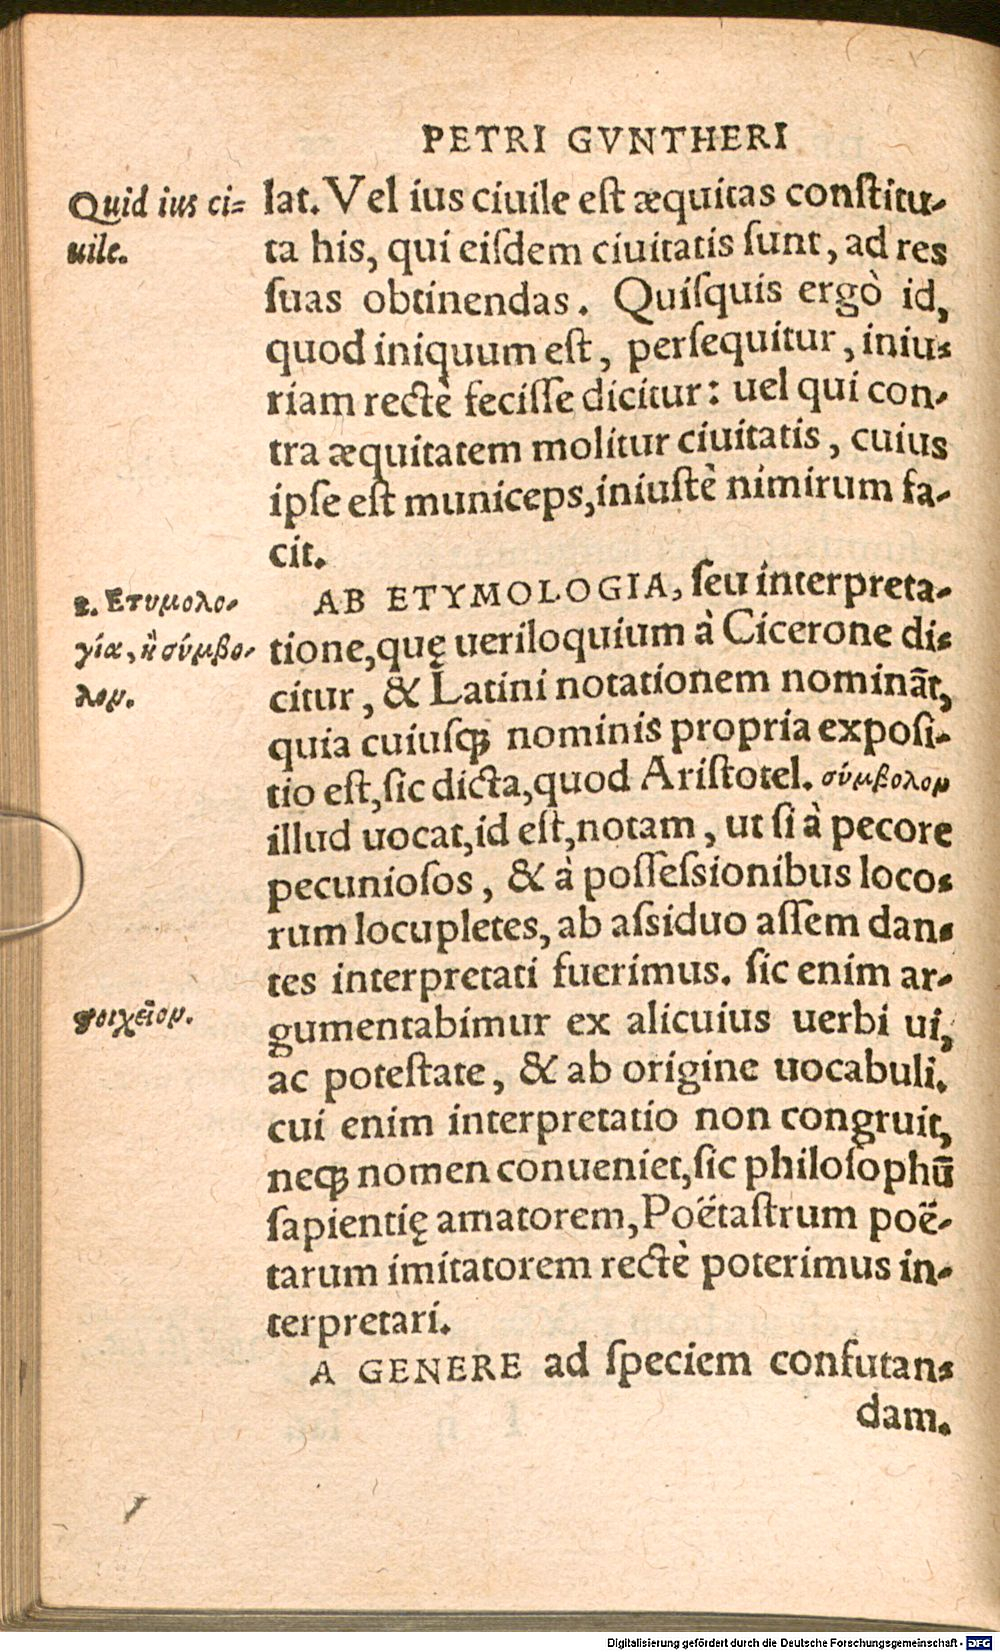 PETRI GVNTHERI
Quid ius ci=
uile.
lat. Vel ius ciuile est æquitas constitu-
ta his, qui eiſdem ciuitatis ſunt, ad res
ſuas obtinendas. Quiſquis ergò id,
quod iniquum est, perſequitur, iniu-
riam rectè feciſſe dicitur: uel qui con-
tra æquitatem molitur ciuitatis, cuius
ipſe eſt municeps, iniuſtè nimirum fa-
cit.
2. Ετυμολο-
γία, ἢ σύμβο-
λον.
AB ETYMOLOGIA, ſeu interpreta-
tione, quę ueriloquium à Cicerone di-
citur, & Latini notationem nominãt,
quia cuiuſq́ꝫ nominis propria expoſi-
tio eſt, ſic dicta, quod Ariſtotel. σύμβολον
illud uocat, id eſt, notam, ut ſi à pecore
pecunioſos, & à poſſeſsionibus loco-
rum locupletes, ab aſsiduo aſſem dan-
tes interpretati fuerimus. ſic enim ar-
ϛοιχεῖον.
gumentabimur ex alicuius uerbi ui,
ac poteſtate, & ab origine uocabuli.
cui enim interpretatio non congruit,
neqꝫ nomen conueniet, ſic philoſophũ
ſapientię amatorem, Poëtaſtrum poë-
tarum imitatorem rectè poterimus in-
terpretari.
A GENERE ad ſpeciem confutan-
dam.
Digitalisierung gefördert durch die Deutsche Forschungsgemeinschaft - DFG